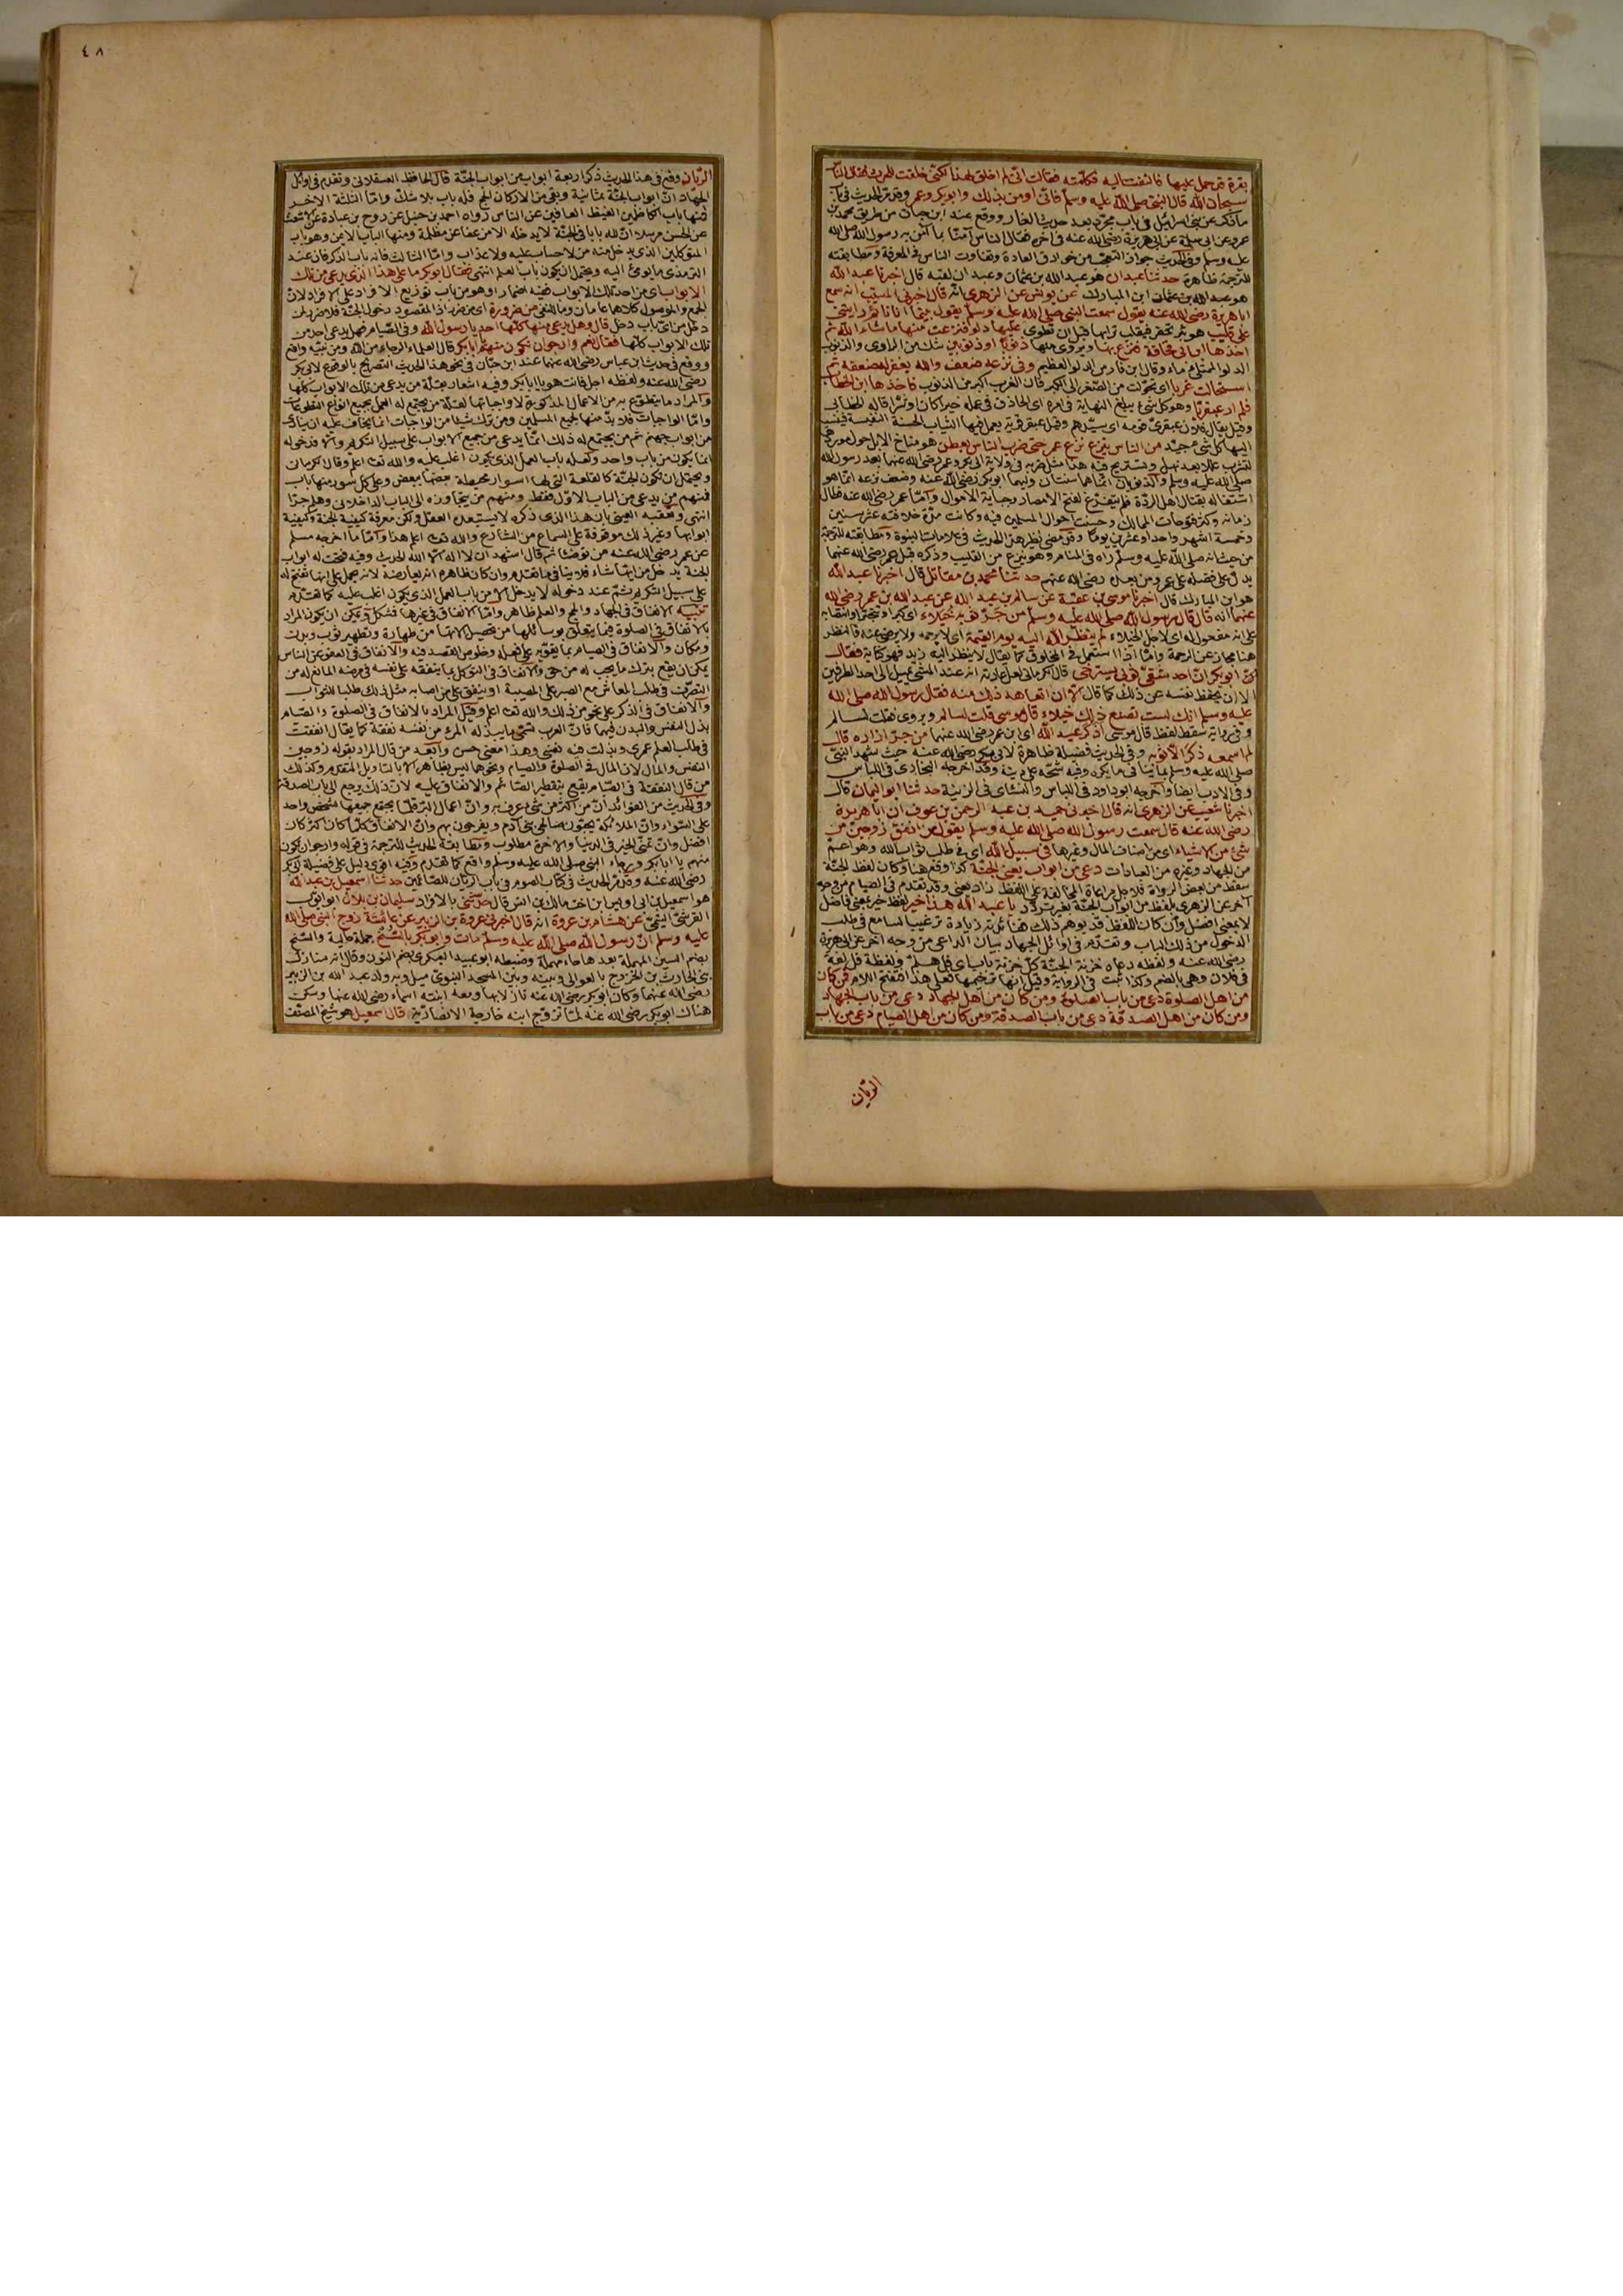 بقرة قد حمل عليها فالتفتت اليه فكلمته فقالت اني لم اخلق لهذا لكني خلقت للحرث فقال الناس
سبحان الله قال النبي صلى الله عليه وسلم فاني اومن بذلك وابو بكر وعمر وقد مر الحديث في باب
ما ذكر عن بني اسرائيل في باب مجرد بعد حديث الغار ووقع عند ابن حبان من طريق محمد بن
عمرو عن ابي سلمة عن ابي هريرة رضي الله عنه في اخره فقال الناس آمنا بما آمن به رسول الله صلى الله
عليه وسلم وفي الحديث جواز التعجب من خوارق العادة وتفاوت الناس في المعرفة ومطابقته
للترجمة ظاهرة حدثنا عبدان هو عبد الله بن عثمان وعبدان لقبه قال اخبرنا عبد الله
هو عبد الله بن عثمان ابن المبارك عن يونس عن الزهري انه قال اخبرني ابن المسيب انه سمع
ابا هريرة رضي الله عنه يقول سمعت النبي صلى الله عليه وسلم يقول بينا انا نائم رأيتني
على قليب هو بئر تحفر فيقلب ترابها قبل ان تطوى عليها دلو فنزعت منها ما شاء الله ثم
اخذها ابن ابي قحافة فنزع بها ويروى منها ذنوبا او ذنوبين شك من الراوي والذنوب
الدلو الممتلئ ماء وقال ابن فارس الدلو العظيم وفي نزعه ضعف والله يغفر له ضعفه ثم
استحالت غربا اي تحولت من الصغر الى الكبر فان الغرب اكبر من الذنوب فاخذها ابن الخطاب
فلم ار عبقريا وهو كل شئ يبلغ النهاية في امره اي الحاذق في عمله خيرا كان او شرا قاله الخطابي
وقيل يقال فلان عبقري قومه اي سيدهم وقيل عبقر قرية يعمل فيها الثياب الحسنة النفيسة فينسب
اليها كل شئ جيد من الناس ينزع نزع عمر حتى ضرب الناس بعطن هو مناخ الابل حول موردها
لتشرب عللا بعد نهل وتستريح فيه هذا مثل ضربه في ولاية ابي بكر وعمر رضي الله عنهما بعد رسول الله
صلى الله عليه وسلم والذنوبان اشارة هما سنتان وليهما ابو بكر رضي الله عنه وضعف نزعه انما هو
اشتغاله بقتال اهل الردة فلم يتفرغ لفتح الامصار وجباية الاموال واما عمر رضي الله عنه فطال
زمانه وكثر فتوحات الممالك وحسنت احوال المسلمين فيه وكانت مدة خلافته عشر سنين
وخمسة اشهر واحدا وعشرين يوما وقد مضى نظير هذا الحديث في علامات النبوة ومطابقته للترجمة
من حيث انه صلى الله عليه وسلم رآه في المنام وهو ينزع من القليب وذكره قبل عمر رضي الله عنهما
يدل على فضله على عمر ومن بعده رضي الله عنهم حدثنا محمد بن مقاتل قال اخبرنا عبد الله
هو ابن المبارك قال اخبرنا موسى بن عقبة عن سالم بن عبد الله عن عبد الله بن عمر رضي الله
عنهما انه قال قال رسول الله صلى الله عليه وسلم من جر ثوبه خيلاء اي كبرا وتبخترا وانتصابه
على انه مفعول له اي لاجل الخيلاء لم ينظر الله اليه يوم القيمة اي لا يرحمه ولا يرضى عنه فالنظر
هنا مجاز عن الرحمة واما اذا استعمل في المخلوق كما يقال لا ينظر اليه زيد فهو كناية فقال
ابو بكر ان احد شقي ثوبي يسترخي قال الكرماني لعل عادته انه عند المشي يميل الى احد الطرفين
الا ان يحفظ نفسه عن ذلك كما قال الا ان اتعاهد ذلك منه فقال رسول الله صلى الله
عليه وسلم انك لست تصنع ذلك خيلاء قال موسى قلت لسالم ويروى فقلت لسالم
وفي رواية سقط لفظ قال موسى اذكر عبد الله اي ابن عمر رضي الله عنهما من جر ازاره قال
لم اسمعه ذكر الا ثوبه وفي الحديث فضيلة ظاهرة لابي بكر رضي الله عنه حيث شهد النبي
صلى الله عليه وسلم بما ينافي ما يكره وفيه شحه على دينه وقد اخرجه البخاري في اللباس
وفي الادب ايضا واخرجه ابو داود في اللباس والنسائي في الزينة حدثنا ابو اليمان قال
اخبرنا شعيب عن الزهري انه قال اخبرني حميد بن عبد الرحمن بن عوف ان ابا هريرة
رضي الله عنه قال سمعت رسول الله صلى الله عليه وسلم يقول من انفق زوجين من
شئ من الاشياء اي من اصناف المال وغيرها في سبيل الله اي في طلب ثواب الله وهو اعم
من الجهاد وغيره من العبادات دعي من ابواب يعني الجنة كذا وقع هنا وكان لفظ الجنة
سقط من بعض الرواة فلاجل مراعاة المحافظة على اللفظ زاد يعني وقد تقدم في الصيام من وجه
آخر عن الزهري بلفظ من ابواب الجنة بغير تردد يا عبد الله هذا خير لفظ خير بمعنى فاضل
لا بمعنى افضل وان كان اللفظ قد يوهم ذلك ففائدته زيادة ترغيب السامع في طلب
الدخول من ذلك الباب وتقدم في اوائل الجهاد بيان الداعي من وجه آخر عن ابي هريرة
رضي الله عنه ولفظه دعاه خزنة الجنة كل خزنة باب اي فل هلم ولفظة فل لغة
في فلان وهي بالضم وكذا ثبت في الرواية وقيل انها ترخيمها فعلى هذا فتفتح اللام فمن كان
من اهل الصلوة دعي من باب الصلوة ومن كان من اهل الجهاد دعي من باب الجهاد
ومن كان من اهل الصدقة دعي من باب الصدقة ومن كان من اهل الصيام دعي من باب
الريان
٤٨
الريان وقع في هذا الحديث ذكر اربعة ابواب من ابواب الجنة قال الحافظ العسقلاني وتقدم في اوائل
الجهاد ان ابواب الجنة ثمانية وبقي من الاركان الحج فله باب بلا شك واما الثلثة الاخر
فمنها باب الكاظمين الغيظ العافين عن الناس رواه احمد بن حنبل عن روح بن عبادة عن اشعث
عن الحسن مرسلا ان لله بابا في الجنة لا يدخله الا من عفا عن مظلمة ومنها الباب الايمن وهو باب
المتوكلين الذي يدخل منه من لا حساب عليه ولا عذاب واما الثالث فلعله باب الذكر فان عند
الترمذي ما يومئ اليه ويحتمل ان يكون باب العلم انتهى فقال ابو بكر ما على هذا الذي يدعى من تلك
الابواب اي من احد تلك الابواب ففيه اضمار او هو من باب توزيع الافراد على الافراد لان
الجمع والموصول كلاهما عامان وما للنفي من ضرورة اي من ضرر اذ المقصود دخول الجنة فلا ضرر لمن
دخل من اي باب دخل قال وهل يدعى منها كلها احد يا رسول الله وفي الصيام فهل يدعى احد من
تلك الابواب كلها فقال نعم وارجو ان تكون منهم يا ابا بكر قال العلماء الرجاء من الله ومن نبيه واقع
ووقع في حديث ابن عباس رضي الله عنهما عند ابن حبان في نحو هذا الحديث التصريح بالوقوع لابي بكر
رضي الله عنه ولفظه اجل وانت هو يا ابا بكر وفيه اشعار بقلة من يدعى من تلك الابواب كلها
والمراد ما يتطوع به من الاعمال المذكورة لا واجباتها لقلة من يجتمع له العمل بجميع انواع التطوعات
واما الواجبات فلا بد منها لجميع المسلمين ومن ترك شيئا من الواجبات انما يخاف عليه ان ينادى
من ابواب جهنم ثم من يجتمع له ذلك انما يدعى من جميع الابواب على سبيل التكريم والا فدخوله
انما يكون من باب واحد ولعله باب العمل الذي يكون اغلب عليه والله تعالى اعلم وقال الكرماني
ويحتمل ان تكون الجنة كالقلعة التي لها اسوار محيطة بعضها ببعض وعلى كل سور منها باب
فمنهم من يدعى من الباب الاول فقط ومنهم من يتجاوزه الى الباب الداخلاني وهلم جرا
انتهى وتعقبه العيني بان هذا الذي ذكره لا يستبعده العقل ولكن معرفة كيفية الجنة وكيفية
ابوابها وغير ذلك موقوفة على السماع من الشارع والله تعالى اعلم هذا واما ما اخرجه مسلم
عن عمر رضي الله عنه من توضأ ثم قال اشهد ان لا اله الا الله الحديث وفيه فتحت له ابواب
الجنة يدخل من ايها شاء فلا ينافي ما تقدم وان كان ظاهره انه يعارضه لانه يحمل على انها تفتح له
على سبيل التكريم ثم عند دخوله لا يدخل الا من باب العمل الذي يكون اغلب عليه كما تقدم
تنبيه الانفاق في الجهاد والحج والعلم ظاهر واما الانفاق في غيرها فمشكل ويمكن ان يكون المراد
بالانفاق في الصلوة فيما يتعلق بوسائلها من تحصيل آلاتها من طهارة وتطهير ثوب وبدن
ومكان والانفاق في الصيام بما يقويه على فعله وخلوص القصد فيه والانفاق في العفو عن الناس
يمكن ان يقع بترك ما يجب له من حق والانفاق في التوكل بما ينفقه على نفسه في مرضه المانع له من
التصرف في طلب المعاش مع الصبر على المصيبة او ينفق على من اصابه مثل ذلك طلبا للثواب
والانفاق في الذكر على نحو من ذلك والله تعالى اعلم وقيل المراد بالانفاق في الصلوة والصيام
بذل النفس والبدن فيهما فان العرب تسمي ما يبذله المرء من نفسه نفقة كما يقال انفقت
في طلب العلم عمري وبذلت فيه نفسي وهذا معنى حسن وابعد من قال المراد بقوله زوجين
النفس والمال لان المال في الصلوة والصيام ونحوهما ليس بظاهر الا بالتاويل المتقدم وكذلك
من قال النفقة في الصيام يقع بتفطير الصائم والانفاق عليه لان ذلك يرجع الى باب الصدقة
وفي الحديث من الفوائد ان من اكثر من شئ عرف به وان اعمال البر قلما يجتمع جميعها لشخص واحد
على السواء وان الملائكة يحبون صالحي بني آدم ويفرحون بهم وان الانفاق كلما كان اكثر كان
افضل وان تمني الخير في الدنيا والاخرة مطلوب ومطابقة الحديث للترجمة في قوله وارجو ان تكون
منهم يا ابا بكر ورجاء النبي صلى الله عليه وسلم واقع كما تقدم وفيه اقوى دليل على فضيلة ابي بكر
رضي الله عنه وقد مر الحديث في كتاب الصوم في باب الريان للصائمين حدثنا اسمعيل بن عبد الله
هو اسمعيل بن ابي اويس ابن اخت مالك بن انس قال حدثني بالافراد سليمان بن بلال ابو ايوب
القرشي التيمي عن هشام بن عروة انه قال اخبرني عروة بن الزبير عن عائشة زوج النبي صلى الله
عليه وسلم ان رسول الله صلى الله عليه وسلم مات وابو بكر بالسنح جملة حالية والسنح
بضم السين المهملة بعدها حاء مهملة وضبطه ابو عبيد البكري بضم النون وقال انه منازل
بني الحارث بن الخزرج بالعوالي وبينه وبين المسجد النبوي ميل وبه ولد عبد الله بن الزبير
رضي الله عنهما وكان ابو بكر رضي الله عنه نازلا بها ومعه ابنته اسماء رضي الله عنها وسكن
هناك ابو بكر رضي الله عنه لما تزوج ابنة خارجة الانصارية قال اسمعيل هو شيخ المصنف